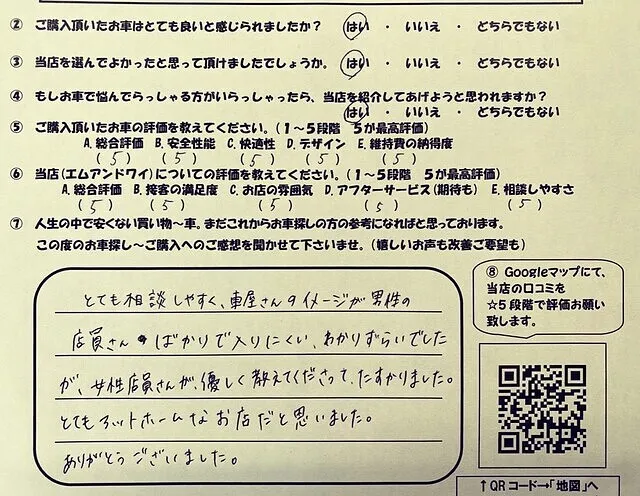 ② ご購入頂いたお車はとても良いと感じられましたか？ はい ・ いいえ ・ どちらでもない
③ 当店を選んでよかったと思って頂けましたでしょうか。 はい ・ いいえ ・ どちらでもない
④ もしお車で悩んでらっしゃる方がいらっしゃったら、当店を紹介してあげようと思われますか？
はい ・ いいえ ・ どちらでもない
⑤ ご購入頂いたお車の評価を教えてください。（１～５段階　５が最高評価）
A. 総合評価 B. 安全性能 C. 快適性 D. デザイン E. 維持費の納得度
(5) (5) (5) (5) (5)
⑥ 当店（エムアンドワイ）についての評価を教えてください。（１～５段階　５が最高評価）
A. 総合評価 B. 接客の満足度 C. お店の雰囲気 D. アフターサービス（期待も） E. 相談しやすさ
(5) (5) (5) (5) (5)
⑦ 人生の中で安くない買い物～車。まだこれからお車探しの方の参考になればと思っております。
この度のお車探し～ご購入へのご感想を聞かせて下さいませ。（嬉しいお声も改善ご要望も）
とても相談しやすく、車屋さんのイメージが男性の
店員さんばかりで入りにくい、わかりずらいでした
が、女性店員さんが、優しく教えてくださって、たすかりました。
とてもアットホームなお店だと思いました。
ありがとうございました。
⑧ Googleマップにて、
当店の口コミを
☆５段階で評価お願い
致します。
↑QRコード→「地図」へ